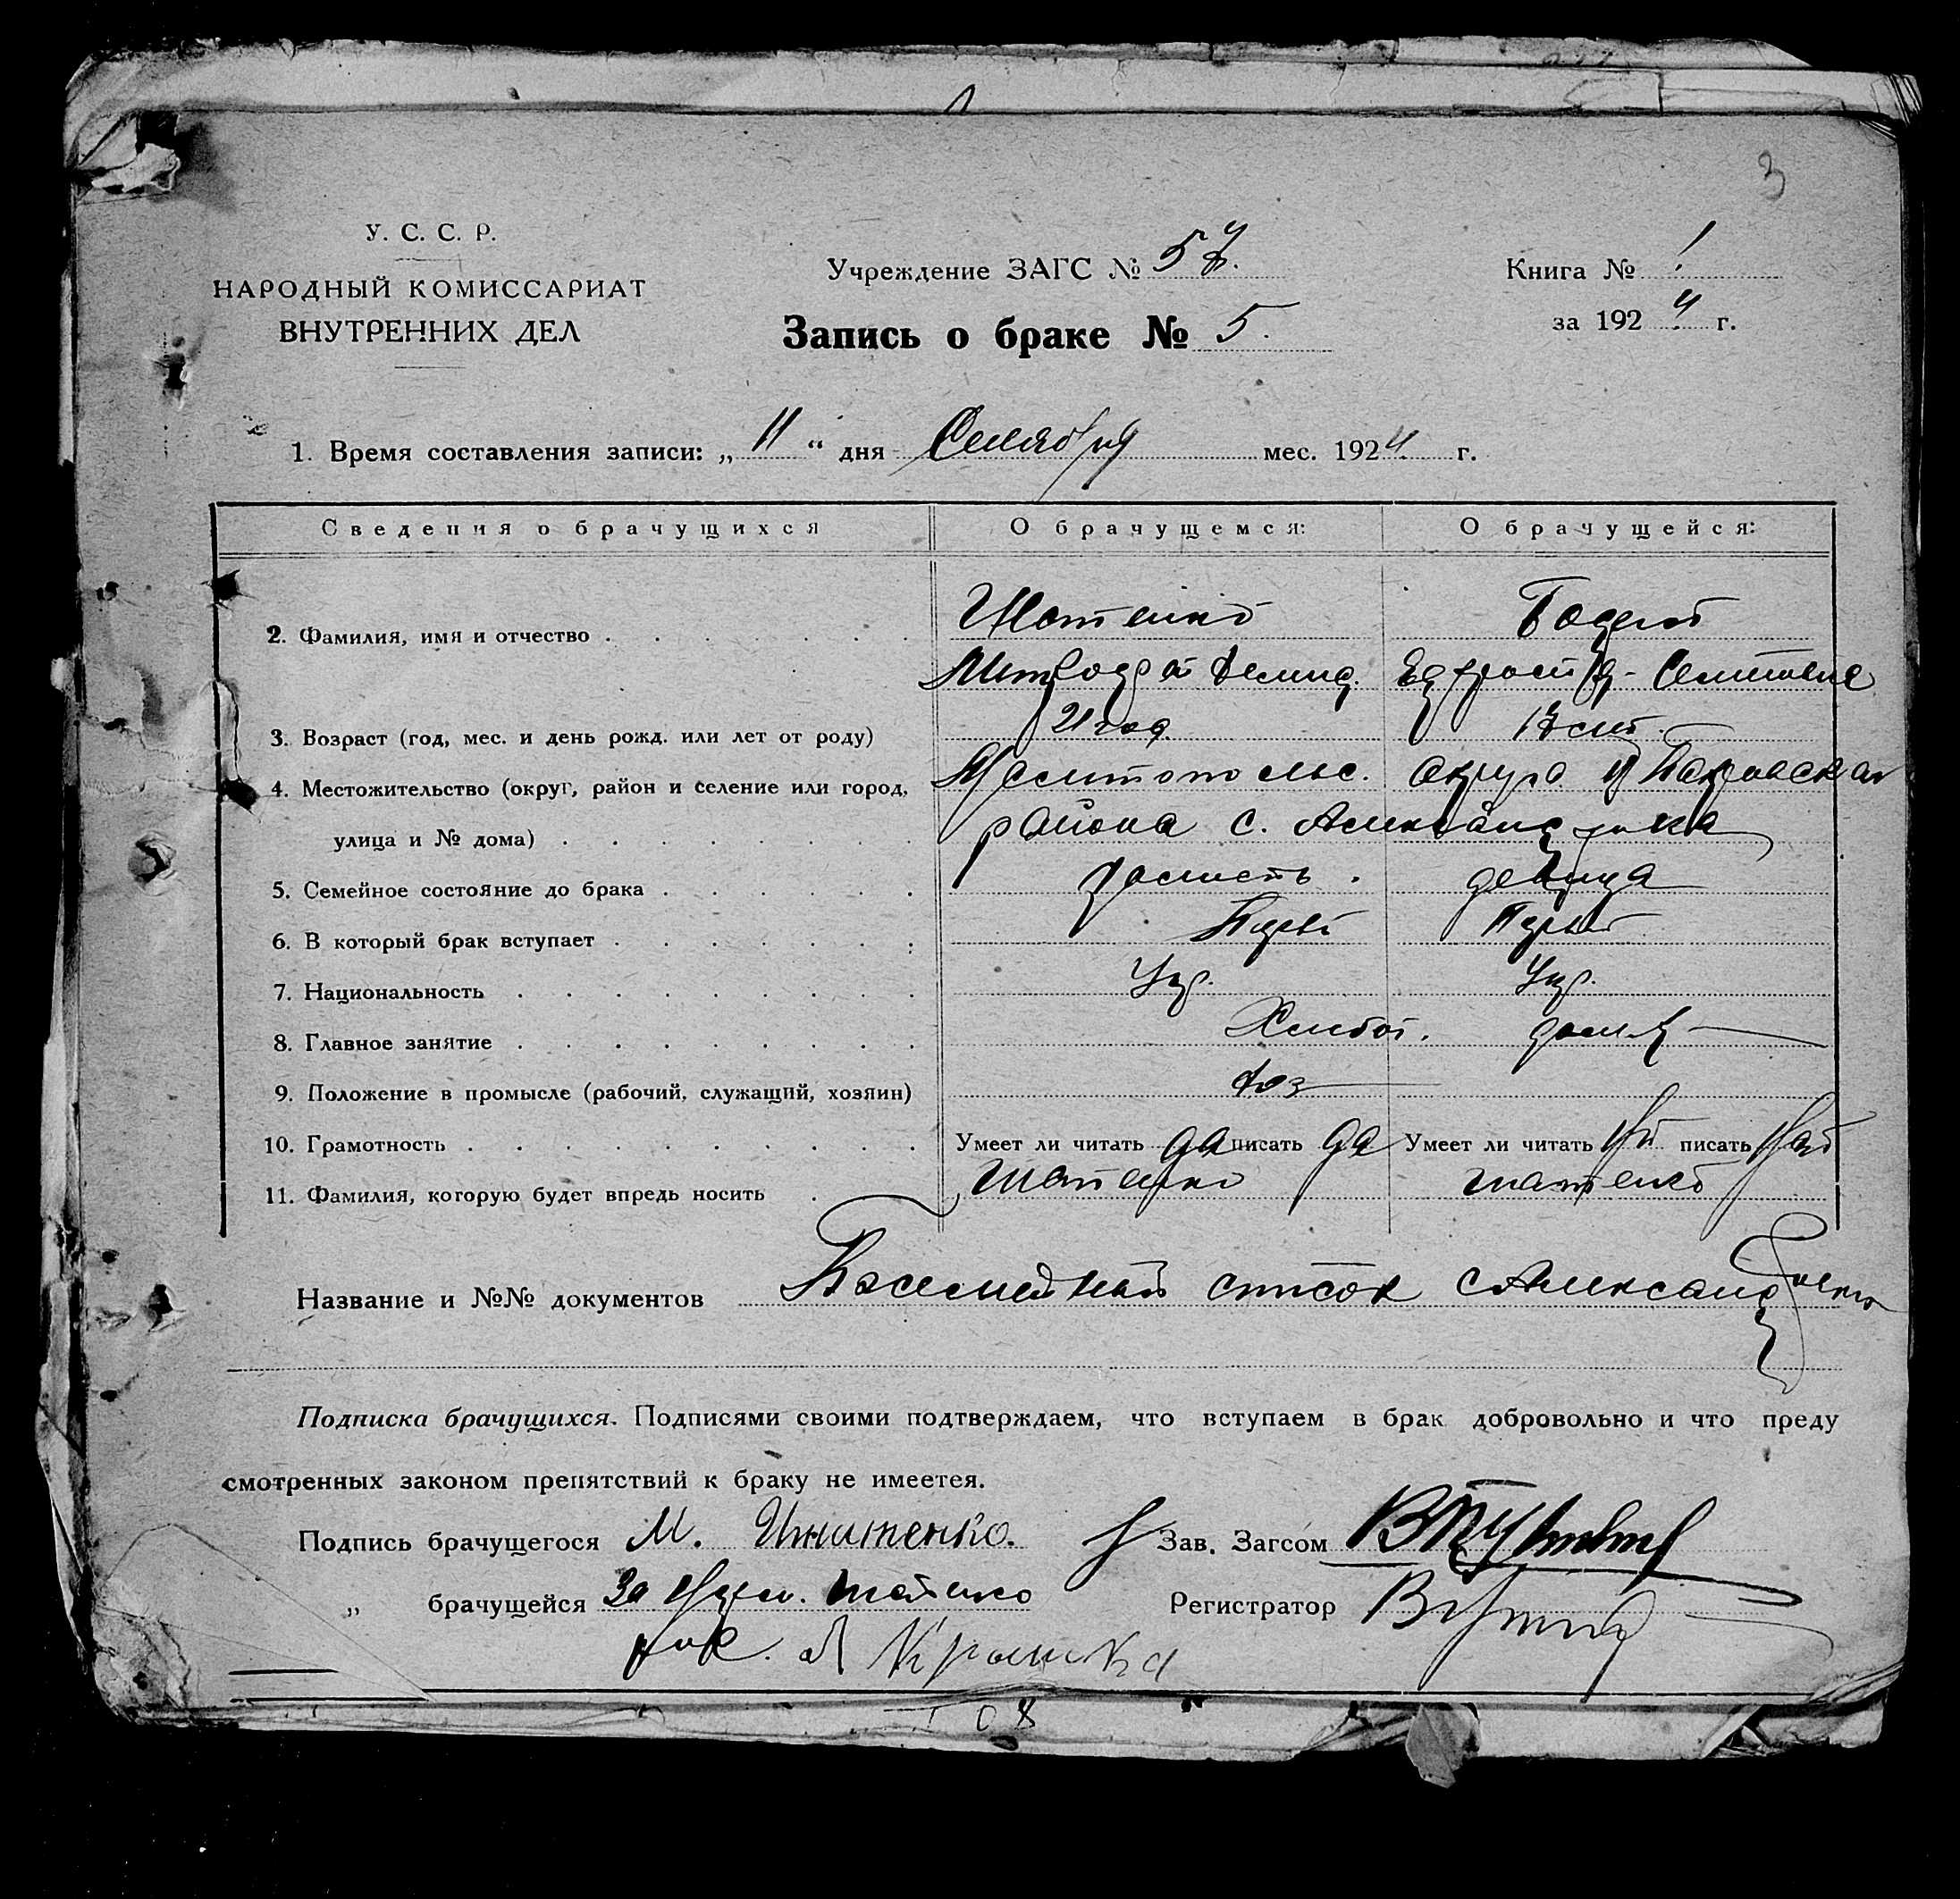 3
У. С. С. Р.
НАРОДНЫЙ КОМИССАРИАТ
ВНУТРЕННИХ ДЕЛ
Учреждение ЗАГС №
Запись о браке № 5.
Книга № 1
за 1924 г.
1. Время составления записи: „ 11 “ дня Сентября мес. 1924 г.
Сведения о брачущихся О брачущемся: О брачущейся:
2. Фамилия, имя и отчество
3. Возраст (год, мес. и день рожд. или лет от роду) 21 год
4. Местожительство (округ, район и селение или город, Мелитопольс. округа Покровская
улица и № дома) района с. Александровка
5. Семейное состояние до брака холость. девица
6. В который брак вступает Первый Первый
7. Национальность Укр. Укр.
8. Главное занятие Хлебоп. домаш
9. Положение в промысле (рабочий, служащий, хозяин) хоз
10. Грамотность Умеет ли читать да писать да Умеет ли читать писать
11. Фамилия, которую будет впредь носить Шатенко Шатенко
Название и №№ документов Посемейный список с Александровки
Подписка брачущихся. Подписями своими подтверждаем, что вступаем в брак добровольно и что преду
смотренных законом препятствий к браку не имеется.
Подпись брачущегося М. Зав. Загсом
„ брачущейся За Шатенко Регистратор
рос.